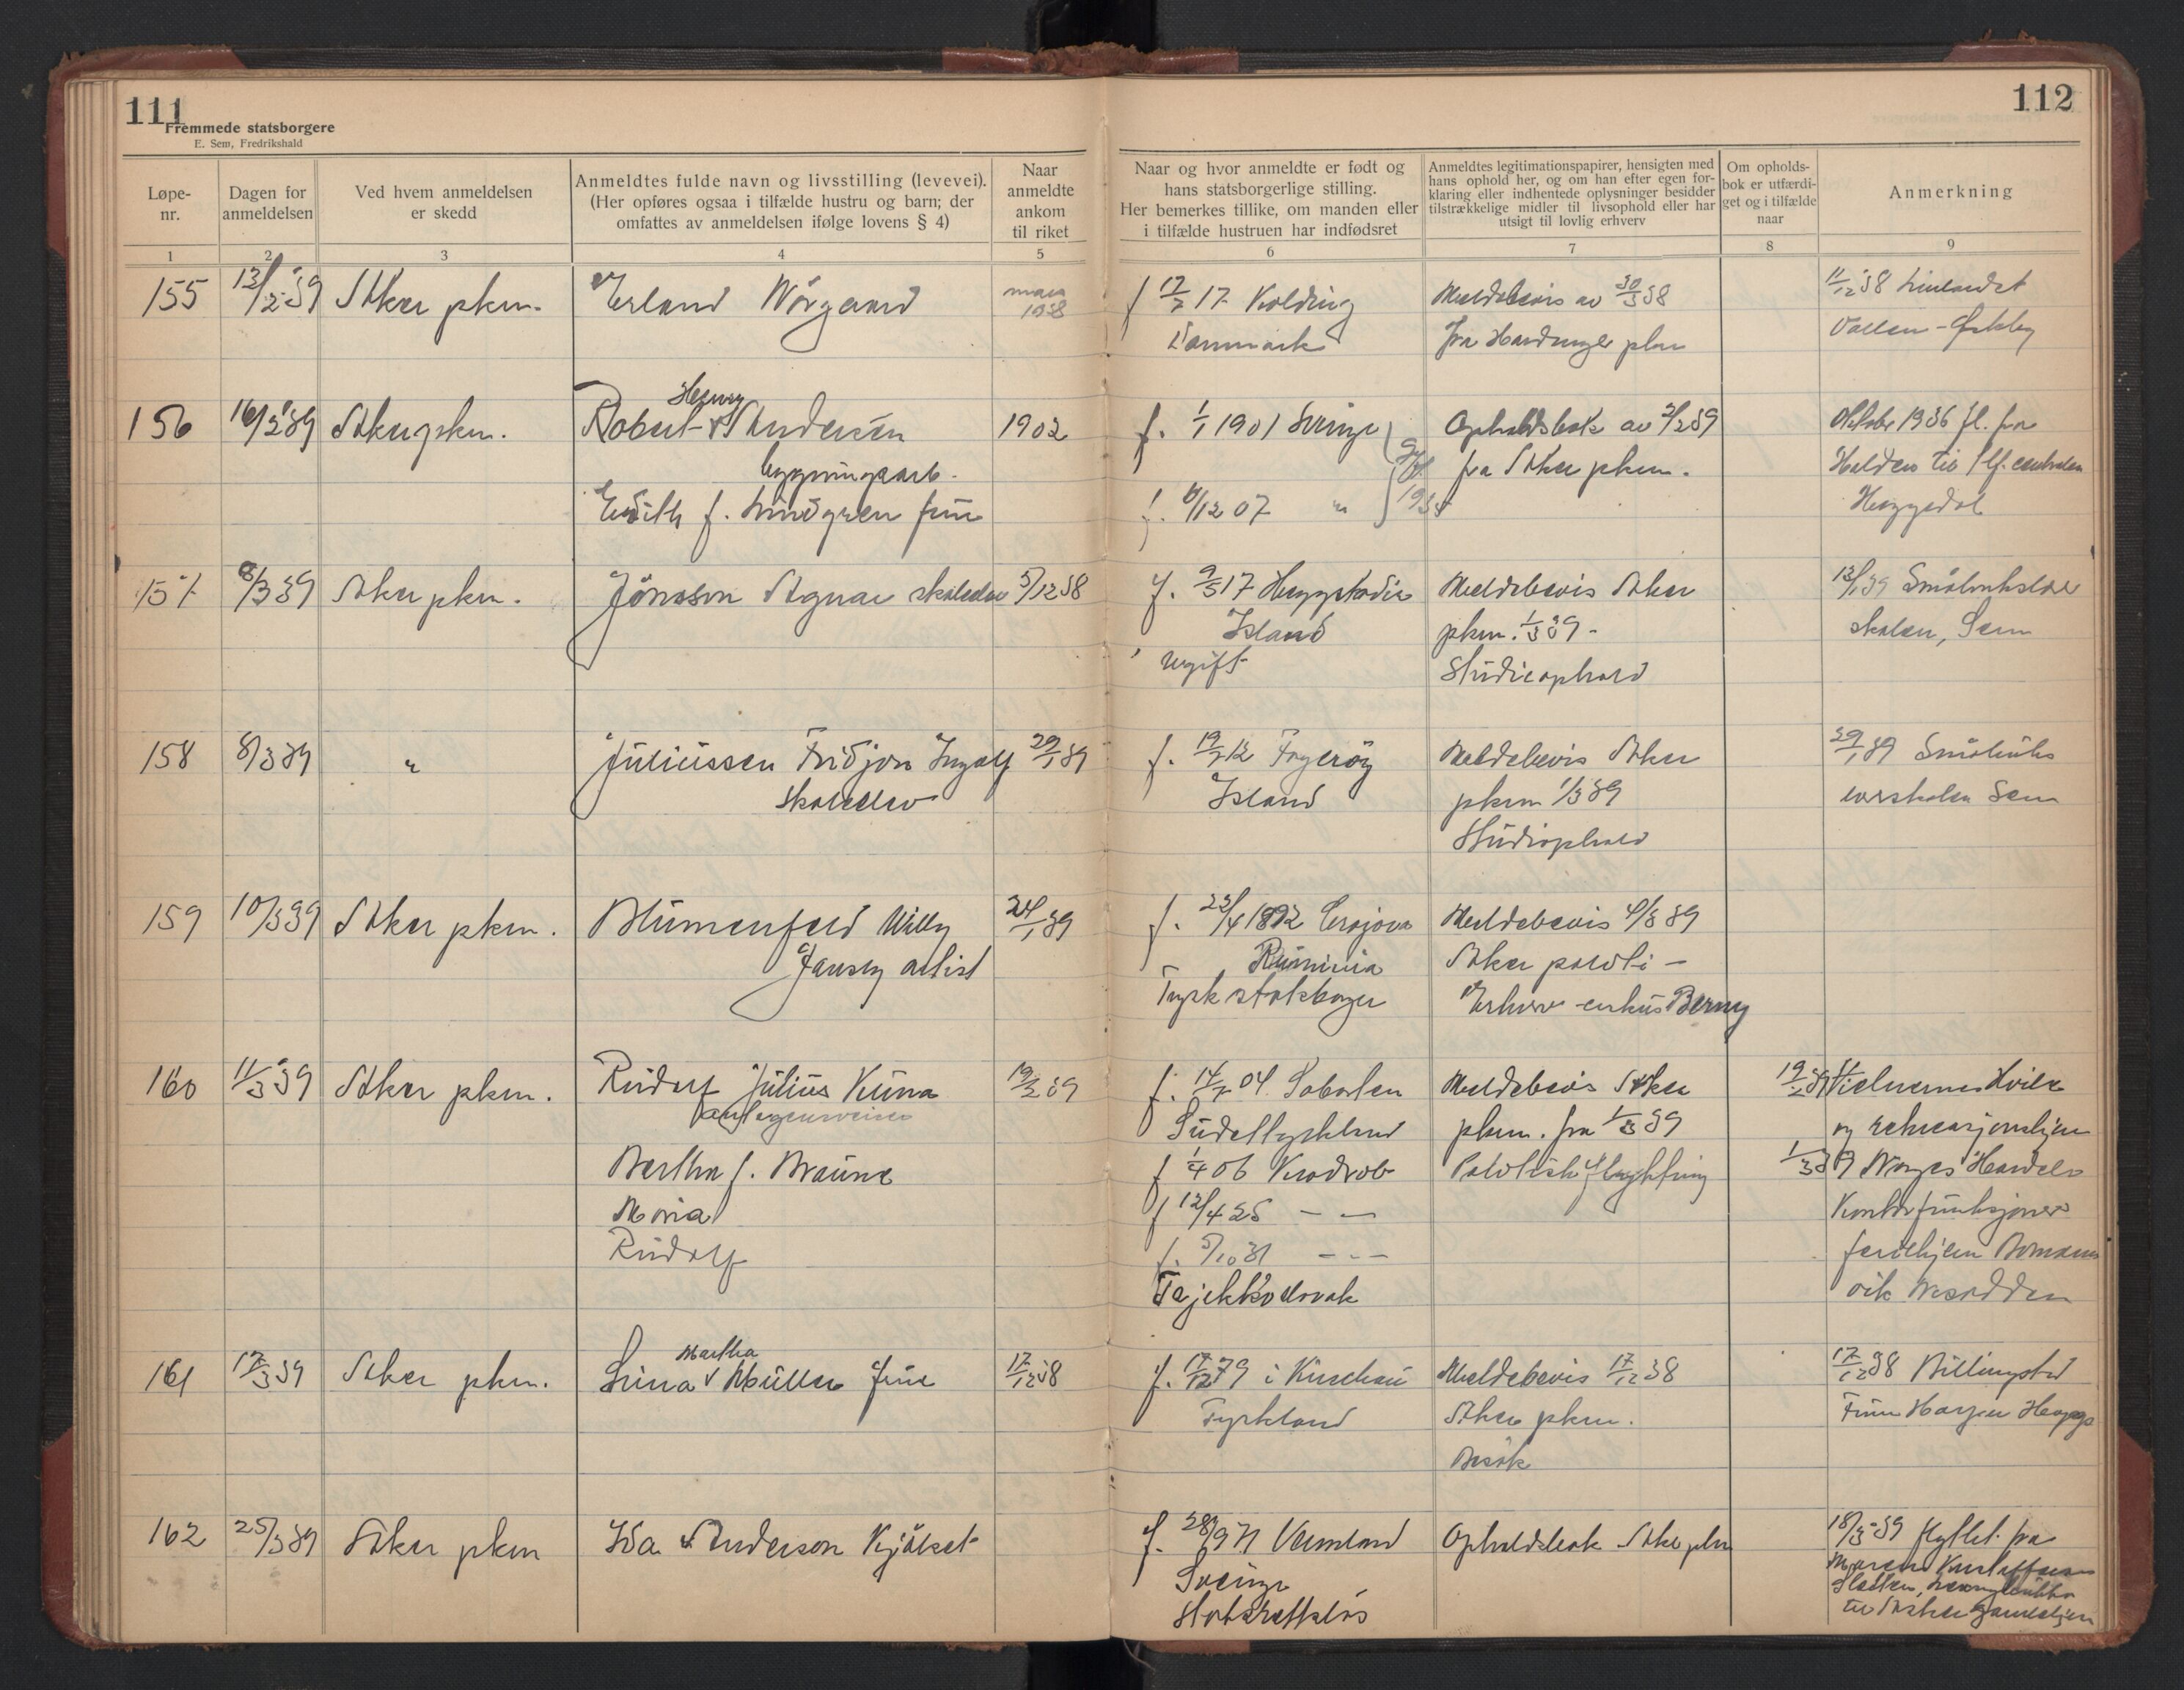 111
Fremmede statsborgere
E. Sem, Fredrikshald
112
Løpe-
nr.
Dagen for
anmeldelsen
Ved hvem anmeldelsen
er skedd
Anmeldtes fulde navn og livsstilling (levevei).
(Her opføres ogsaa i tilfælde hustru og barn; der
omfattes av anmeldelsen ifølge lovens § 4)
Naar
anmeldte
ankom
til riket
Naar og hvor anmeldte er født og
hans statsborgerlige stilling.
Her bemerkes tillike, om manden eller
i tilfælde hustruen har indfødsret
Anmeldtes legitimationspapirer, hensigten med
hans ophold her, og om han efter egen for-
klaring eller indhentede oplysninger besidder
tilstrækkelige midler til livsophold eller har
utsigt til lovlig erhverv
Om opholds-
bok er utfærdi-
get og i tilfælde
naar
Anmerkning
1 2 3 4 5 6 7 8 9
155 13/2 39 Asker pkm. Erland Nörgaard mars f 17 Kolding Meldebevis av 30/3 38 11/12 38
1938 Danmark fra Hardanger pkm Vollen
Henry
156 16/2 39 Asker pkm. Robert Andersén 1902 f. 1/1 1901 Sverige Opholdsbok av 2/2 39 Oktober 1936 fl. fra
bygningsarb. gift fra Asker pkm. Halden til tlf. centralen
Edith f. Lindgren frue f. 6/12 07 " 1934 Heggedal
157 8/3 39 Asker pkm. Jónsson Agnar skoleelev 5/12 38 f. 9/3 17 Meldebevis Asker 13/1 39 Småbruks
Island pkm. 1/3 39 - skolen, Sem
ugift Studieophold
158 8/3 39 " Júlíussen Fridjon Ingolf 29/1 39 f. 19/ 12 Fagerøy Meldebevis Asker 29/1 39 Småbruks
skoleelev Island pkm 1/3 39 skolen Sem
Studieophold
159 10/3 39 Asker pkm. Blumenfeld Willy 24/1 39 f. 23/4 1892 Crajova Meldebevis 4/3 39
Jansly artist Rumenia Asker politi -
Tysk statsborger Erhverv - cirkus Berny
160 11/3 39 Asker pkm. Rudolf Julius Kuna 19/2 39 f. 14/ 04 Meldebevis Asker 19/2 39 Hvile
Sudettyskland pkm. fra 1/3 39 og rekreasjonshjem
Bertha f. Braune f 1/4 06 Politisk flyktning 1/3 39 Norges Handels
Maria f 12/4 25 — — Kontorfunksjoner
Rudolf f. 5/10 31 - - - feriehjem
Tsjekkoslovak vik Nesodden
Martha
161 17/3 39 Asker pkm. Lina Müller frue 17/12 38 f. 17/12 79 i Meldebevis 17/12 38 17/12 38 Billingstad
Tyskland Asker pkm. Frue
Besøk
162 25/3 39 Asker pkm Ida Anderson f. 28/9 71 Vermland Opholdsbok Asker pkm 18/3 39 flyttet fra
Sverige
Statsrettsløs til Asker gamlehjem